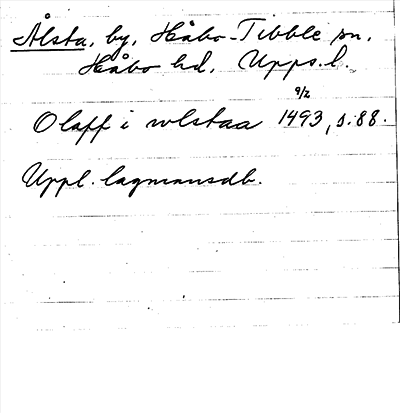 Ålsta, by, Håbo-Tibble sn.
Håbo hd, Upps. l.
9/2
Olaff i wlstaa 1493, s. 88.
Uppl. lagmansdb.